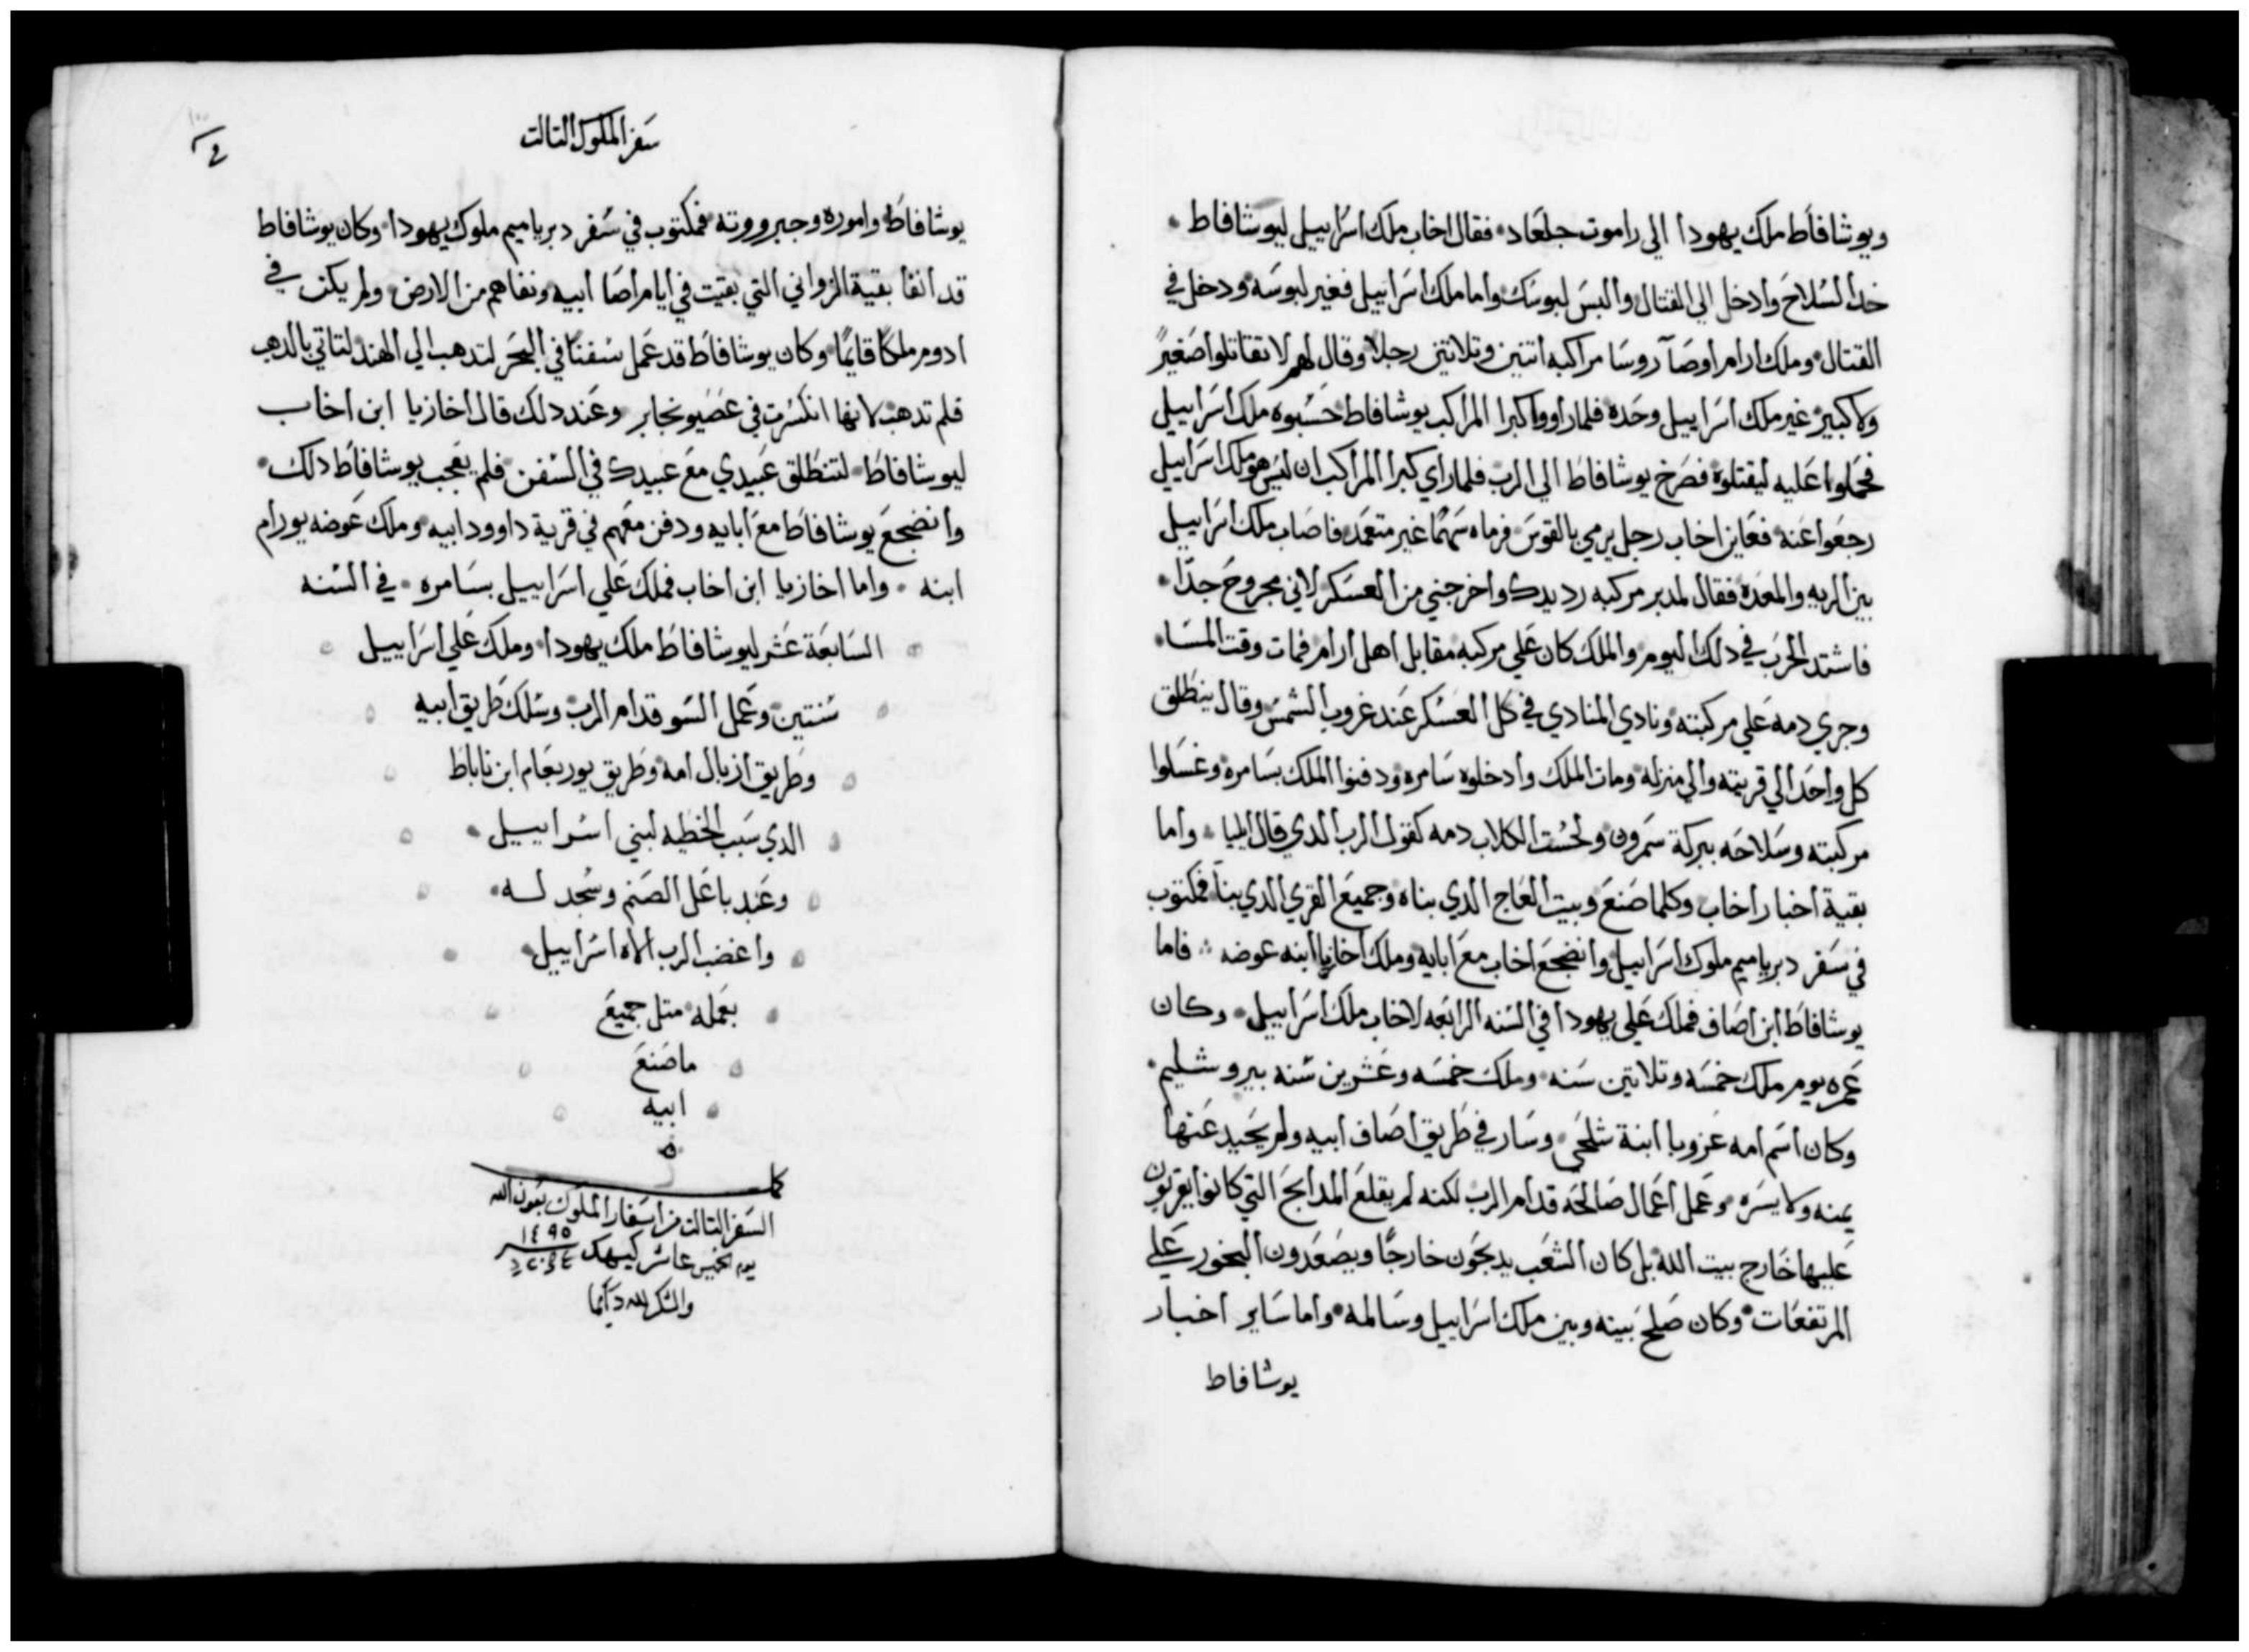 ويوشافاط ملك يهودا الي راموت جلعاد فقال اخاب ملك اسراييل ليوشافاط
خد السلاح وادخل الي القتال والبس لبوسك واما ملك اسراييل فغير لبوسه ودخل في
القتال وملك ارام اوصا روسا مراكبه اتنين وتلاتين رجلا وقال لهم لا تقاتلوا صغير
ولا كبير غير ملك اسراييل وحده فلما راووا كبرا المراكب يوشافاط حسبوه ملك اسراييل
فحملوا عليه ليقتلوه فصرخ يوشافاط الي الرب فلما راي كبرا المراكب ان ليس هو ملك اسراييل
رجعوا عنه فعاين اخاب رجل يرمي بالقوس فرماه سهما غير متعمد فاصاب ملك اسراييل
بين الريه والمعده فقال لمدبر مركبه رد يدك واخرجني من العسكر لاني مجروح جدا
فاشتد الحرب في دلك اليوم والملك كان علي مركبه مقابل اهل ارام فمات وقت المسا
وجري دمه علي مركبته ونادي المنادي في كل العسكر عند غروب الشمس وقال ينطلق
كل واحد الي قريته والي منزله ومات الملك وادخلوه سامره ودفنوا الملك بسامره وغسلوا
مركبته وسلاحه ببركة سمرون ولحست الكلاب دمه كقول الرب الدي قال ايليا واما
بقية اخبار اخاب وكلما صنع وبيت العاج الدي بناه وجميع القري الدي بنا فمكتوب
في سفر دبرياميم ملوك اسراييل وانضجع اخاب مع ابايه وملك اخازيا ابنه عوضه فاما
يوشافاط ابن اصاف فملك علي يهودا في السنه الرابعه لاخاب ملك اسراييل وكان
عمره يوم ملك خمسه وتلاتين سنه وملك خمسه وعشرين سنه بيروشليم
وكان اسم امه عزوبا ابنة شلحي وسار في طريق اصاف ابيه ولم يحيد عنها
يمنه ولا يسره وعمل اعمال صالحه قدام الرب لكنه لم يقلع المدابح التي كانوا يقربون
عليها خارج بيت الله بل كان الشعب يدبحون خارجا ويصعدون البخور علي
المرتفعات وكان صلح بينه وبين ملك اسراييل وسالمه واما ساير اخبار
يوشافاط
سفر الملوك التالت
يوشافاط واموره وجبرووته فمكتوب في سفر دبرياميم ملوك يهودا وكان يوشافاط
قد انفا بقية الزواني التي بقيت في ايام اصا ابيه ونفاهم من الارض ولم يكن في
ادوم ملكا قايما وكان يوشافاط قد عمل سفنا في البحر لتدهب الي الهند لتاتي بالدهب
فلم تدهب لانها انكسرت في عصيونجابر وعند دلك قال اخازيا ابن اخاب
ليوشافاط لتنطلق عبيدي مع عبيدك في السفن فلم يعجب يوشافاط دلك
وانضجع يوشافاط مع ابايه ودفن معهم في قرية داوود ابيه وملك عوضه يورام
ابنه واما اخازيا ابن اخاب فملك علي اسراييل بسامره في السنه
السابعة عشر ليوشافاط ملك يهودا وملك علي اسراييل
سنتين وعمل السو قدام الرب وسلك طريق ابيه
وطريق ازبال امه وطريق يوربعام ابن ناباط
الدي سبب الخطيه لبني اسراييل
وعبد باعل الصنم وسجد له
واغضب الرب الاه اسراييل
بعمله متل جميع
ما صنع
ابيه
كمل
السفر التالت من اسفار الملوك بعون الله
يوم الخميس عاشر كيهك ١٤٩٥
والشكر لله دايما